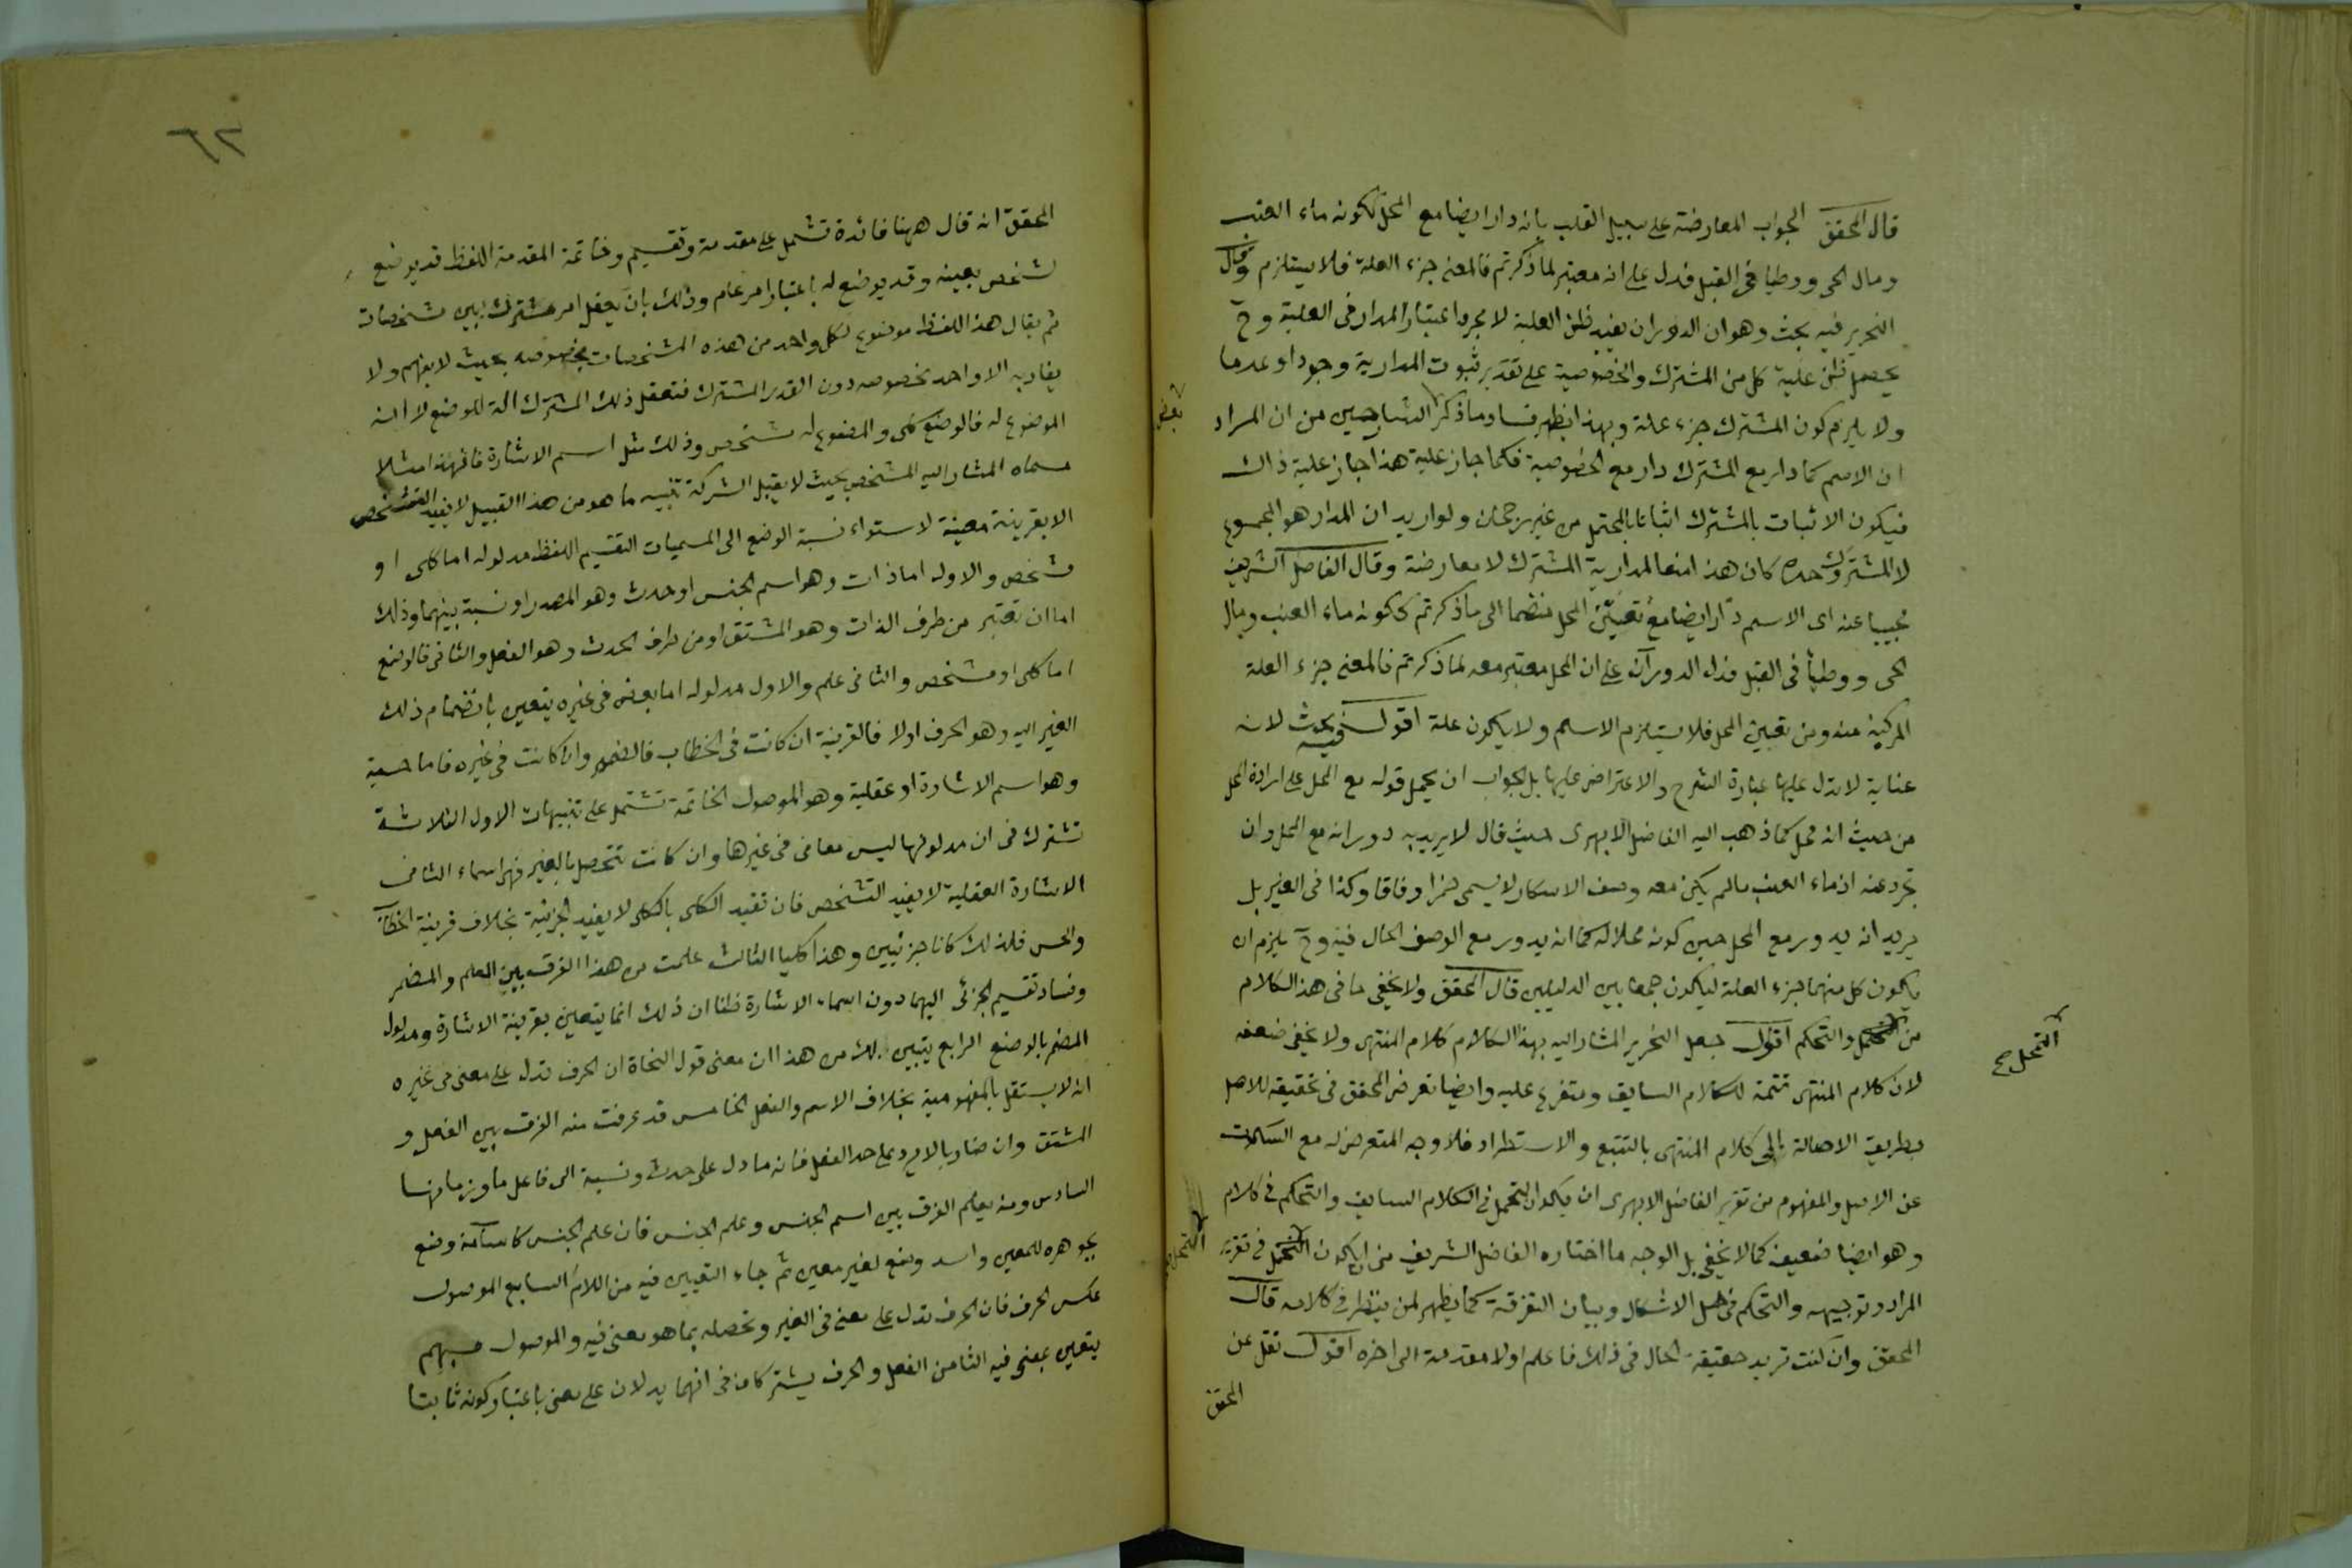 قال المحقق الجواب المعارضة على سبيل القلب بانه دار ايضا مع المحل ككونه ماء العنب
ومال الحى ووطيا فى القبل فدل على انه معتبر لما ذكرتم فالمعنى جزء العلة فلا يستلزم وقال
النحرير فيه بحث وهو ان الدوران يفيد ظن العلية لا مجرد اعتبار المدار فى العلية وح
يحصل ظن علية كل من المشترك والخصوصية على تقدير ثبوت المدارية وجودا وعدما
ولا يلزم كون المشترك جزء علة وبهذا يظهر فساد ما ذكر الشارحين من ان المراد
بعض
ان الاسم كما دار مع المشترك دار مع الخصوصية فكما جاز علية هذا جاز علية ذاك
فيكون الاثبات بالمشترك اثباتا بالمحتمل من غير رجحان ولو اريد ان المدار هو المجموع
لا المشترك وحده كان هذا منعا لمدارية المشترك لا معارضة وقال الفاضل الشريف
مجيبا عنه اى الاسم دار ايضا مع تعيين المحل منضما الى ما ذكرتم ككونه ماء العنب ومال
الحى ووطيا فى القبل فدل الدوران على ان المحل معتبر معه لما ذكرتم فالمعنى جزء العلة
المركبة منه ومن تعيين المحل فلا يستلزم الاسم ولا يكون علة اقول فيه بحث لانه
عناية لا تدل عليها عبارة الشرح والاعتراض عليها بل الجواب ان يحمل قوله مع المحل على ارادة المحل
من حيث انه محل كما ذهب اليه الفاضل الابهرى حيث قال لا يريد به دورانه مع المحل وان
تجرد عنه اذ ماء العنب ما لم يكن معه وصف الاسكار لا يسمى خمرا وفاقا وكذا فى الغير بل
يريد انه يدور مع المحل حين كونه محلا له كما انه يدور مع الوصف الحال فيه وح يلزم ان
يكون كل منهما جزء العلة ليكون جمعا بين الدليلين قال المحقق ولا يخفى ما فى هذا الكلام
من التمحل والتحكم اقول جعل النحرير المشار اليه بهذا الكلام كلام المنتهى ولا يخفى ضعفه
التمحل صح
لان كلام المنتهى تتمة للكلام السابق ومتفرع عليه وايضا تعرض المحقق فى تحقيقه للاصل
بطريق الاصالة والى كلام المنتهى بالتتبع والاستطراد فلا وجه المتعرض له مع السكوت
عن الاصل والمفهوم من تقرير الفاضل الابهرى ان يكون التمحل فى الكلام السابق والتحكم فى كلام
وهو ايضا ضعيف كما لا يخفى بل الوجه ما اختاره الفاضل الشريف من ان يكون التمحل فى تقرير
التمحل
المراد وتوجيهه والتحكم فى حل الاشكال وبيان التفرقة كما يظهر لمن ينظر فى كلامه قال
المحقق وان كنت تريد حقيقة الحال فى ذلك فاعلم اولا مقدمة الى اخره اقول نقل عن
المحقق
٦٢
المحقق انه قال ههنا فائدة تشتمل على مقدمة وتقسيم وخاتمة المقدمة اللفظ قد يوضع
لشخص بعينه وقد يوضع له باعتبار امر عام وذلك بان يعقل امر مشترك بين مشخصات
ثم يقال هذا اللفظ موضوع لكل واحد من هذه المشخصات بخصوصه بحيث لا يفهم ولا
يفاد به الا واحد بخصوصه دون القدر المشترك فتعقل ذلك المشترك آلة للوضع لا انه
الموضوع له فالوضع كلى والموضوع له مشخص وذلك مثل اسم الاشارة فان هذا مثلا
مسماه المشار اليه المشخص بحيث لا يقبل الشركة تنبيه ما هو من هذا القبيل لا يفيد التشخص
الا بقرينة معينة لاستواء نسبة الوضع الى المسميات التقسيم اللفظ مدلوله اما كلى او
مشخص والاول اما ذات وهو اسم الجنس او حدث وهو المصدر او نسبة بينهما وذلك
اما ان تعتبر من طرف الذات وهو المشتق او من طرف الحدث وهو الفعل والثانى فالوضع
اما كلى او مشخص والثانى علم والاول مدلوله اما بمعنى فى غيره يتعين بانضمام ذلك
الغير اليه وهو الحرف او لا فالقرينة ان كانت فى الخطاب فالضمير وان كانت فى غيره فاما حسية
وهو اسم الاشارة او عقلية وهو الموصول الخاتمة تشتمل على تنبيهات الاول الثلاثة
تشترك فى ان مدلولها ليس معانى فى غيرها وان كانت تتحصل بالغير فهى اسماء الثانى
الاشارة العقلية لا يفيد التشخص فان تقيد الكلى بالكلى لا يفيد الجزئية بخلاف قرينة الخطاب
والحس فلذلك كانا جزئيين وهذا كليا الثالث علمت من هذا الفرق بين العلم والمضمر
وفساد تقسيم الجزئى اليهما دون اسماء الاشارة ظنا ان ذلك انما يتعين بقرينة الاشارة ومدلول
المضمر بالوضع الرابع يتبين لك من هذا ان معنى قول النحاة ان الحرف تدل على معنى فى غيره
انه لا يستقل بالمفهومية بخلاف الاسم والفعل الخامس قد عرفت منه الفرق بين الفعل و
المشتق وان ضاربا لا يرد على حد الفعل فانه ما دل على حدث ونسبة الى فاعل ما وزمانها
السادس ومنه يعلم الفرق بين اسم الجنس وعلم الجنس فان علم الجنس كاسامة وضع
بجوهره للمعين واسد وضع لغير معين ثم جاء التعيين فيه من اللام السابع الموصول
عكس الحرف فان الحرف تدل على معنى فى الغير وتحصله بما هو معنى فيه والموصول مبهم
يتعين بمعنى فيه الثامن الفعل والحرف يشتركان فى انهما يدلان على معنى باعتبار كونه ثابتا